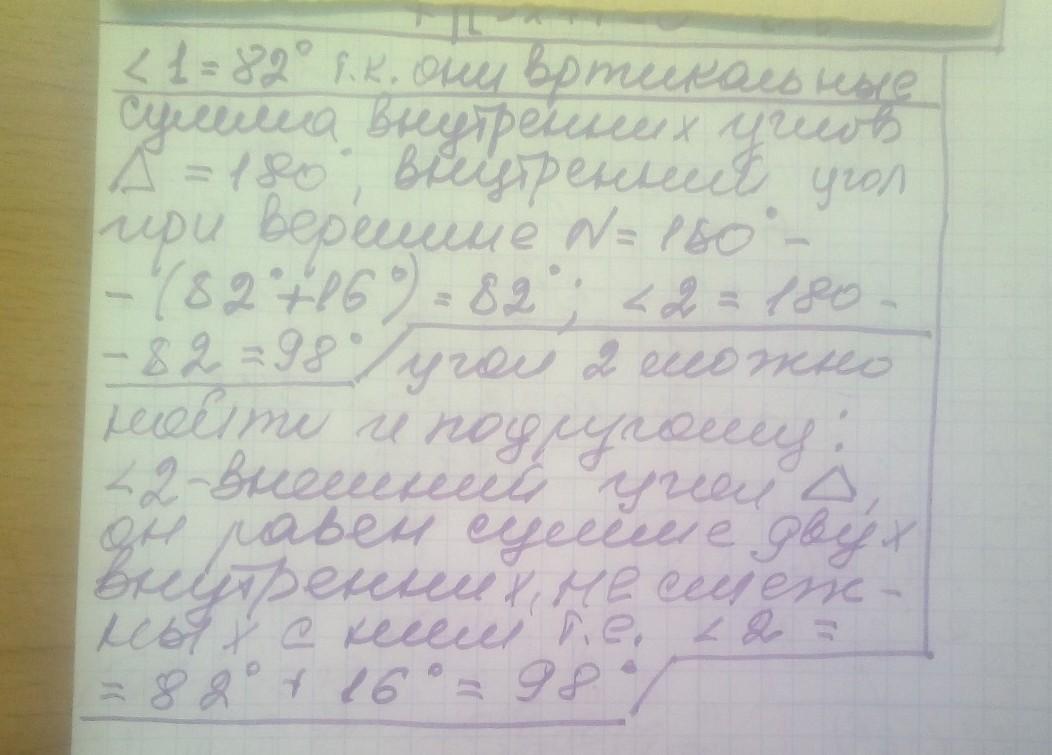 <1=82° т.к. они вртикальные
сумма внутренних углов
Δ=180°, внутренний угол
при вершине N=180°-
-(82°+16°)=82°; <2=180-
-82=98° / угол 2 можно
найти и подругому:
<2-внешний угол Δ,
он равен сумме двух
внутренних, не смеж-
ных с ним т.е. <2=
=82°+16°=98°